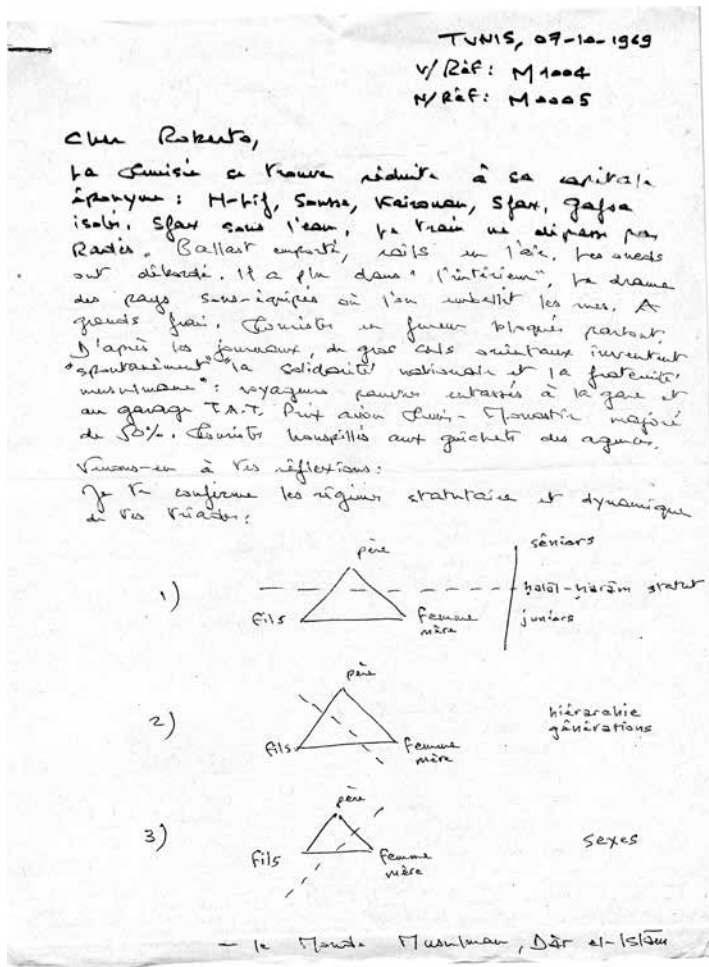 TUNIS, 07-10-1969
V/Réf: M1004
N/Réf: M0005
Cher Roberto,
La Tunisie se trouve réduite à sa capitale
éponyme : H-Lif, Sousse, Kairouan, Sfax, Gafsa
isolés. Sfax sous l'eau, le train ne dépasse pas
Radès. Ballast emporté, rails en l'air. Les oueds
ont débordé. Il a plu dans "l'intérieur". Le drame
des pays sous-équipés où l'on embellit les rues. A
grands frais. Touristes en fureur bloqués partout.
D'après les journaux, de gros cars orientaux inventent
"spontanément" "la solidarité nationale et la fraternité
musulmane" : voyageurs pauvres entassés à la gare et
au garage T.A.T. Prix avion Tunis-Monastir majoré
de 50%. Touristes houspillés aux guichets des agences.
Venons-en à tes réflexions:
Je te confirme les régimes statutaire et dynamique
de tes triades:
1)
père
fils
femme
mère
séniors
halâl-harâm statut
juniors
2)
père
fils
femme
mère
hiérarchie
générations
3)
père
fils
femme
mère
sexes
— le Monde Musulman, Dâr el-Islâm